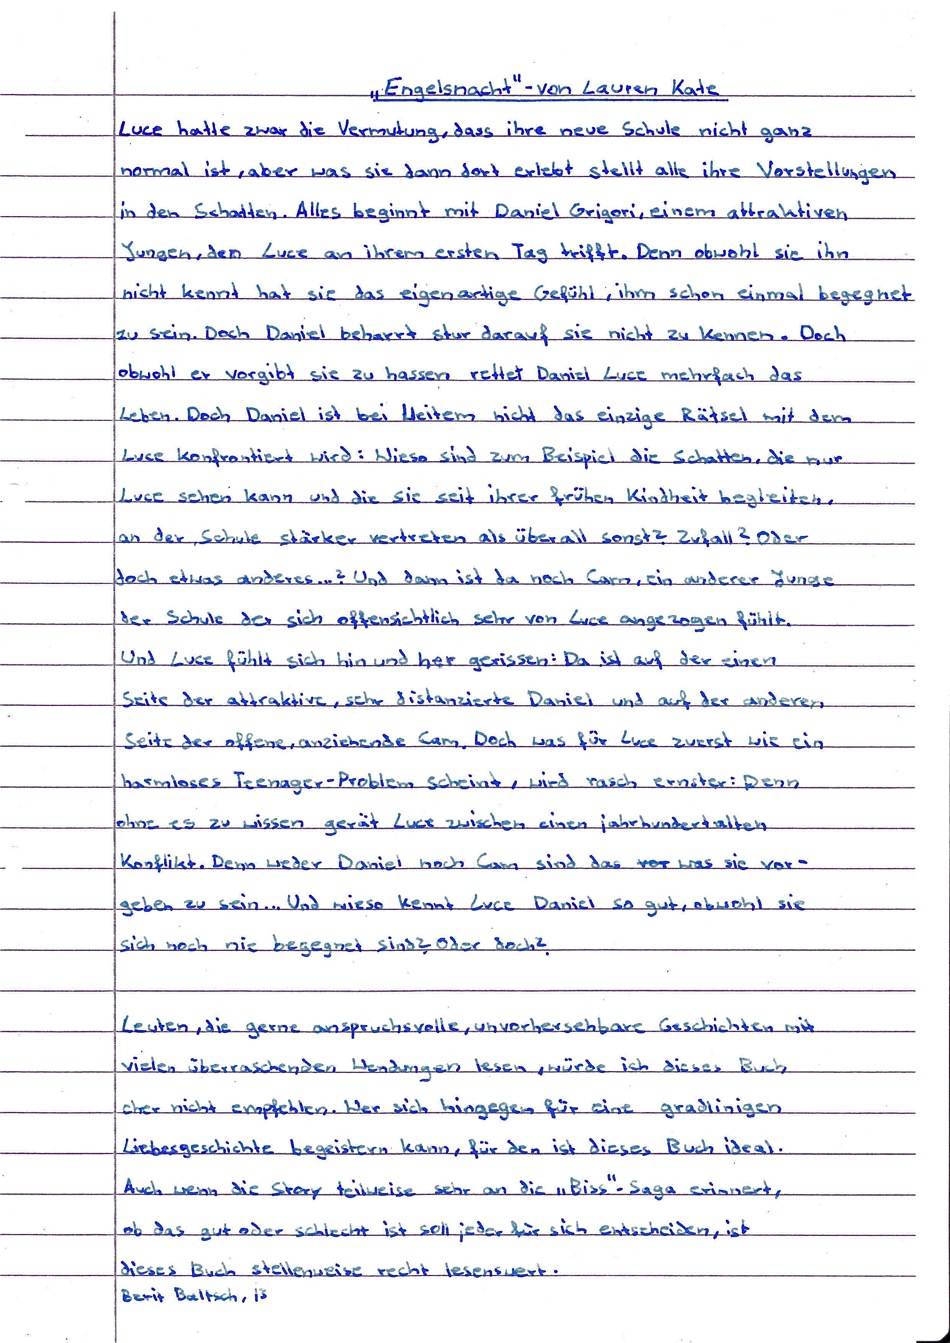 „Engelsnacht" - von Lauren Kate
Luce hatte zwar die Vermutung, dass ihre neue Schule nicht ganz
normal ist, aber was sie dann dort erlebt stellt alle ihre Vorstellungen
in den Schatten. Alles beginnt mit Daniel Grigori, einem attraktiven
Jungen, den Luce an ihrem ersten Tag trifft. Denn obwohl sie ihn
nicht kennt hat sie das eigenartige Gefühl, ihm schon einmal begegnet
zu sein. Doch Daniel beharrt stur darauf sie nicht zu kennen. Doch
obwohl er vorgibt sie zu hassen rettet Daniel Luce mehrfach das
Leben. Doch Daniel ist bei Weitem nicht das einzige Rätsel mit dem
Luce konfrontiert wird: Wieso sind zum Beispiel die Schatten, die nur
Luce sehen kann und die sie seit ihrer frühen Kindheit begleiten,
an der Schule stärker vertreten als überall sonst? Zufall? Oder
doch etwas anderes...? Und dann ist da noch Cam, ein anderer Junge
der Schule der sich offensichtlich sehr von Luce angezogen fühlt.
Und Luce fühlt sich hin und her gerissen: Da ist auf der einen
Seite der attraktive, sehr distanzierte Daniel und auf der anderen
Seite der offene, anziehende Cam. Doch was für Luce zuerst wie ein
harmloses Teenager-Problem scheint, wird rasch ernster: Denn
ohne es zu wissen gerät Luce zwischen einen jahrhundertalten
Konflikt. Denn weder Daniel noch Cam sind das vor was sie vor-
geben zu sein... Und wieso kennt Luce Daniel so gut, obwohl sie
sich noch nie begegnet sind? Oder doch?
Leuten, die gerne anspruchsvolle, unvorhersehbare Geschichten mit
vielen überraschenden Wendungen lesen, würde ich dieses Buch
eher nicht empfehlen. Wer sich hingegen für eine gradlinigen
Liebesgeschichte begeistern kann, für den ist dieses Buch ideal.
Auch wenn die Story teilweise sehr an die „Biss"-Saga erinnert,
ob das gut oder schlecht ist soll jeder für sich entscheiden, ist
dieses Buch stellenweise recht lesenswert.
Berit Baltsch,